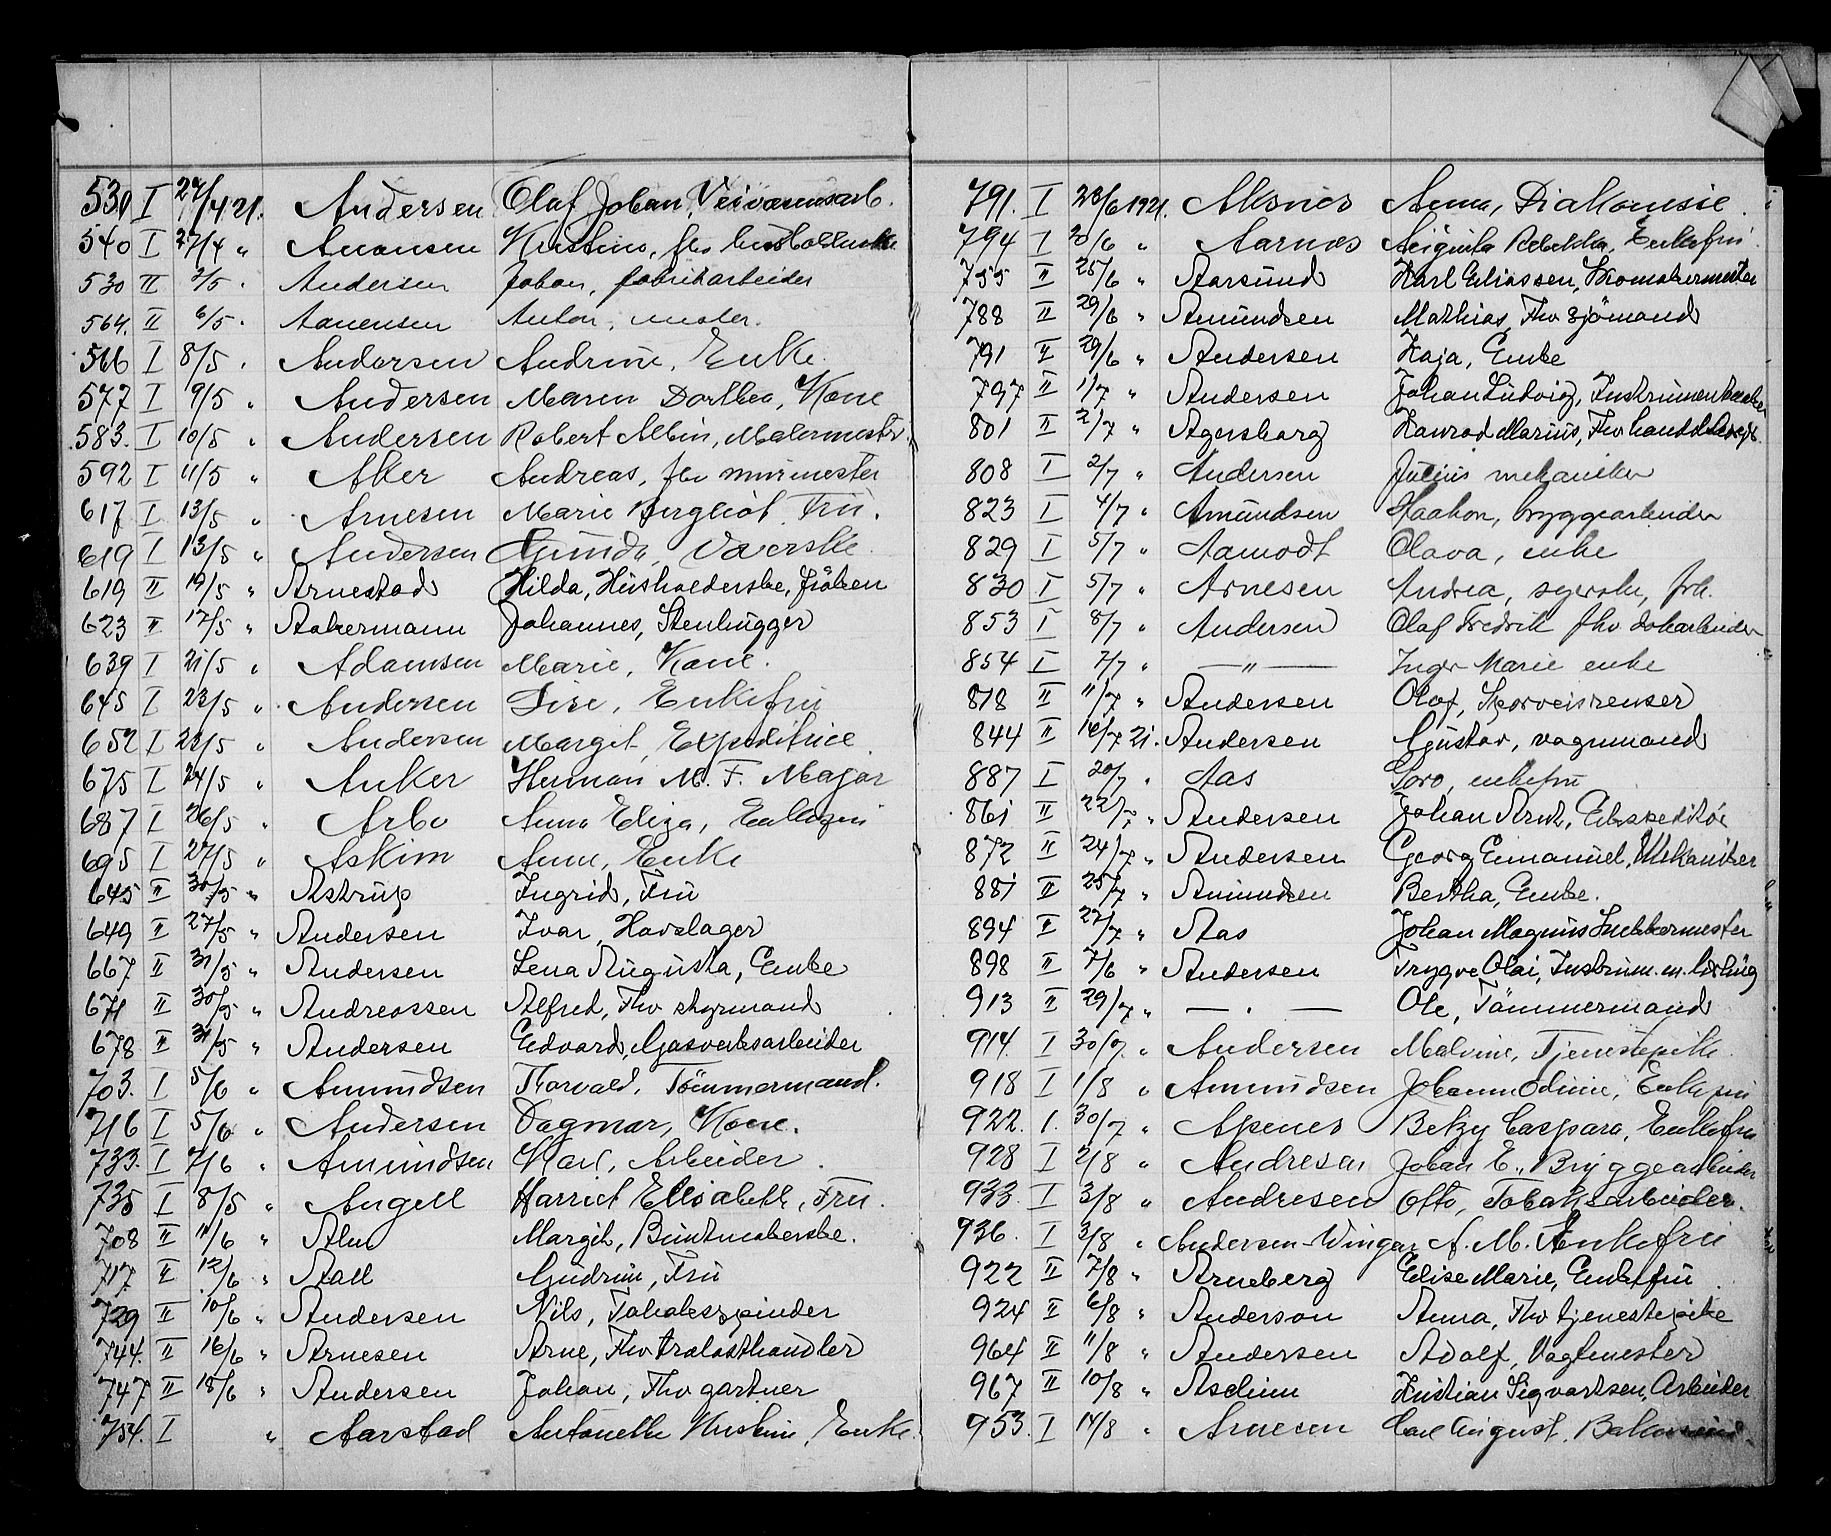 530 I 24/4 21. Andersen Olaf Johan,
540 I 27/4 " Kristine, fhv
530 II 2/5 . Andersen Johan, fabrikarbeider
564. II 6/5 . Aanensen Anton, maler.
566 I 8/5 . Andersen Andrine, Enke.
577 I 9/5 " Andersen Maren Dorthea, Kone
583. I 10/5 " Andersen Robert Albin, Malermester.
592 I 11/5 " Aker Andreas, fhv murmester
617 I 13/5 " Arnesen Marie Bergliot, Fru.
619 I 13/5 " Andersen Gunda, Væverske.
619 II 19/5 " Arnestad Hilda, Husholderske, Fröken
623 II 17/5 " Aakermann Johannes, Stenhugger
639 I 21/5 " Adamsen Marie, Kone.
645 I 23/5 " Andersen Lise, Enkefru
652 I 23/5 " Andersen Margit, Expeditrice.
675 I 24/5 " Anker Herman M. F. Major
687 I 26/5 " Arbo Anna Eliza, Enkefru
695 I 27/5 " Askim Anne, Enke
645 II 30/5 " Astrup Ingrid, Fru
649 II 27/5 " Andersen Ivar, Hovslager
667 II 31/5 " Andersen Lena Augusta, Enke
671 II 30/5 " Andreassen Alfred, Fhv styrmand
678 II 31/5 " Andersen Edvard, Gasverksarbeider
703. I 5/6 " Amundsen Thorvald, Tömmermand.
716 I 5/6 " Andersen Dagmar, Kone.
733. I 7/6 " Amundsen Karl, Arbeider.
735 I 8/5 " Angell Harriet Elisabeth, Fru.
708 II 11/6 " Alm Margit, Buntmakerske.
717 II 12/6 " Aall Gudrun, Fru
729 II 10/6 " Andersen Nils, Tobakspinder
744. II 16/6 " Arnesen Arne, Fhv trælasthandler
747 II 18/6 " Andersen Johan, Fhv gartner
754. I " Aarstad Antonette Kristine, Enke.
791. I 28/6 1921. Aksnes Anna, Diakonisse.
794 I 20/6 " Aarnæs Rebekka, Enkefru.
755 II 25/6 " Aarsund Karl Eliassen, Skomakermester
788 II 29/6 " Amundsen Mathias, Fhv Sjömand
791 II 29/6 " Andersen Kaja, Enke
797 II 1/7 " Andersen Johan Ludvig, Instrumentmaker
801 II 2/7 " Agersborg Konrad Marius, Fhv
808 I 2/7 " Andersen Julius mekaniker
823 I 4/7 " Amundsen Haakon, bryggearbeider
829 I 5/7 " Aamodt Olava, enke
830 I 5/7 " Arnesen Andrea, syerske, frk.
853 I 8/7 " Andersen Olaf Fredrik fhv dokarbeider
854 I 7/7 " —"— Inger Marie enke
818 II 11/7 " Andersen Olaf, Sporveisrenser
844 II 16/7 21. Andersen Gustav, vognmand
887 I 20/7 " Aas enkefru
861 II 22/7 " Andersen Johan Arnt, Ekspeditör
872 II 24/7 " Andersen Georg Emanuel, Mekaniker
881 II 25/7 " Amundsen Bertha, Enke.
894 II 27/7 " Aas Johan Magnus Snekkermester
898 II 7/6 " Andersen Trygve Olai, Instrum. m.
913 II 29/7 " — " — Ole, Tömmermand
914. I 30/7. " Andersen Malvine, Tjenestepike.
918 I 1/8 " Amundsen Johanne Odine, Enkefru
922. I. 30/7 " Apenes Betzy Caspara, Enkefru
928 I 2/8 " Andresen Johan E., Bryggearbeider
933. I 3/8 " Andresen Otto, Tobaksarbeider.
936. I 3/8 " Andersen-Winger A. M. Enkefru
922 II 7/8 " Arneberg Elise Marie, Enkefru
924 II 6/8 " Anderson Anna, Fhv tjenestepike
964 II 11/8 " Andersen Adolf, Vogtmester
967 II 10/8 " Aschim Kristian Sigvartsen, Arbeider
953. I 14/8 " Arnesen Carl August,